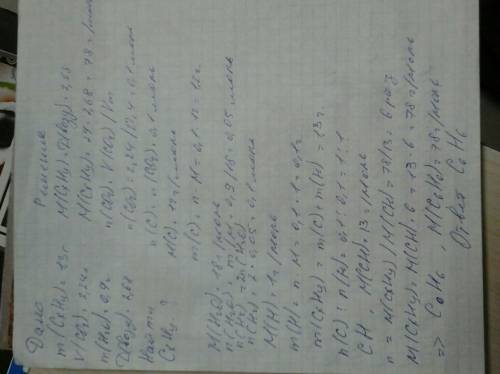 Дано
m(CxHy) = 1,3 г
V(CO₂) = 2,24 л
m(H₂O) = 0,9 г
Dвозд = 2,68
Найти
CxHy - ?
Решение
M(CxHy) = Dвозд · 29
M(CxHy) = 29 · 2,68 = 78 г/моль
n(CO₂) = V(CO₂) / Vm
n(CO₂) = 2,24 / 22,4 = 0,1 моль
n(C) = n(CO₂) = 0,1 моль
M(C) = 12 г/моль
m(C) = n · M = 0,1 · 12 = 1,2 г
M(H₂O) = 18 г/моль
n(H₂O) = m/M = 0,9/18 = 0,05 моль
n(H) = 2n(H₂O)
n(H) = 2 · 0,05 = 0,1 моль
M(H) = 1 г/моль
m(H) = n · M = 0,1 · 1 = 0,1 г
m(CxHy) = m(C) + m(H) = 1,3 г
n(C) : n(H) = 0,1 : 0,1 = 1 : 1
CH, M(CH) = 13 г/моль
n = M(CxHy) / M(CH) = 78/13 = 6 раз
M(CxHy) = M(CH) · 6 = 13 · 6 = 78 г/моль
=> C₆H₆, M(C₆H₆) = 78 г/моль
Ответ C₆H₆